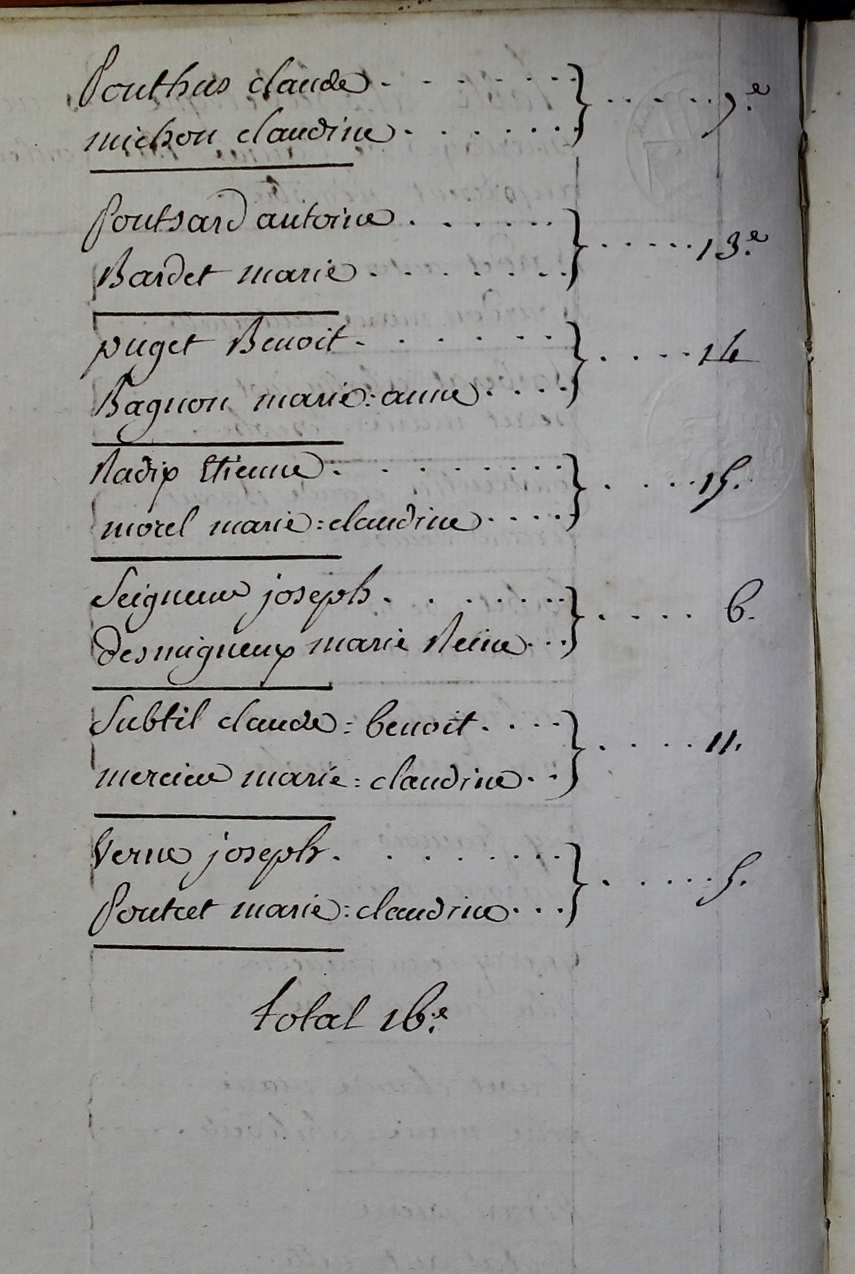 Ponthus claude . . . . . . . } . . . . . 7.e
michon claudine . . . . . .
Pontsard antoine . . . . . } . . . . . 13.e
Bardet marie . . . . . . .
puget Benoit . . . . . . } . . . . 14
Bagnon marie=anne . . . .
Nadix Etienne . . . . . . . } . . . . 15.
morel marie=claudine . . . .
Seigneur joseph . . . . . . } . . . . 6.
desmigneux marie Reine . . .
Subtil claude=benoit . . . . } . . . . 11.
mercier marie=claudine . .
Verne joseph . . . . . . . } . . . . . 5.
Pontcet marie=claudine . . .
total 16.e